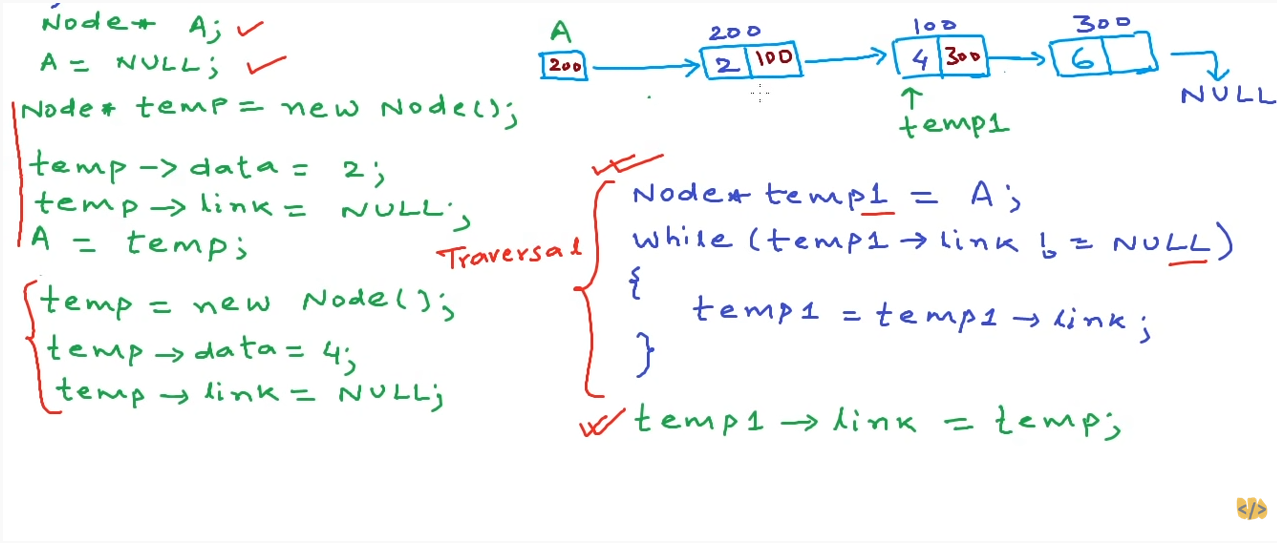 Node* A;
A = NULL;
Node* temp = new Node();
temp -> data = 2;
temp -> link = NULL;
A = temp;
temp = new Node();
temp -> data = 4;
temp -> link = NULL;
A 200 100 300
200 2 100 4 300 6
NULL
temp1
Traversal
Node* temp1 = A;
while (temp1 -> link != NULL)
{
temp1 = temp1 -> link;
}
temp1 -> link = temp;
</>